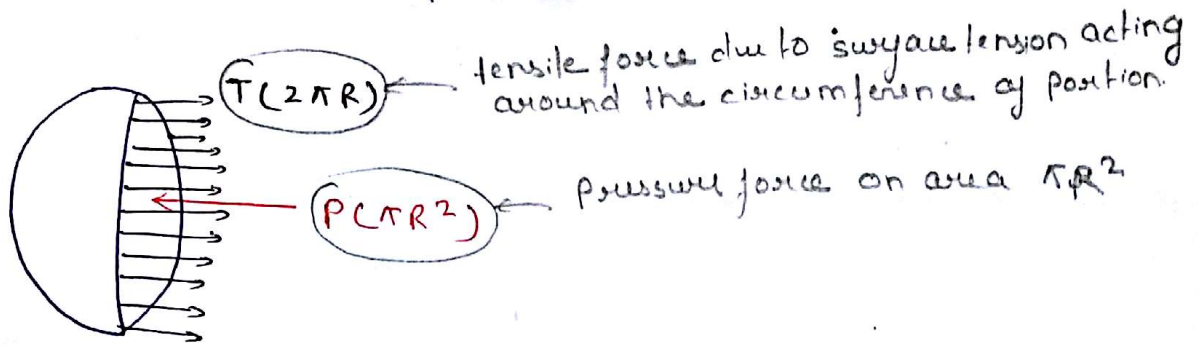 T(2πR)
tensile force due to surface tension acting
around the circumference of portion.
P(πR²)
pressure force on area πR²